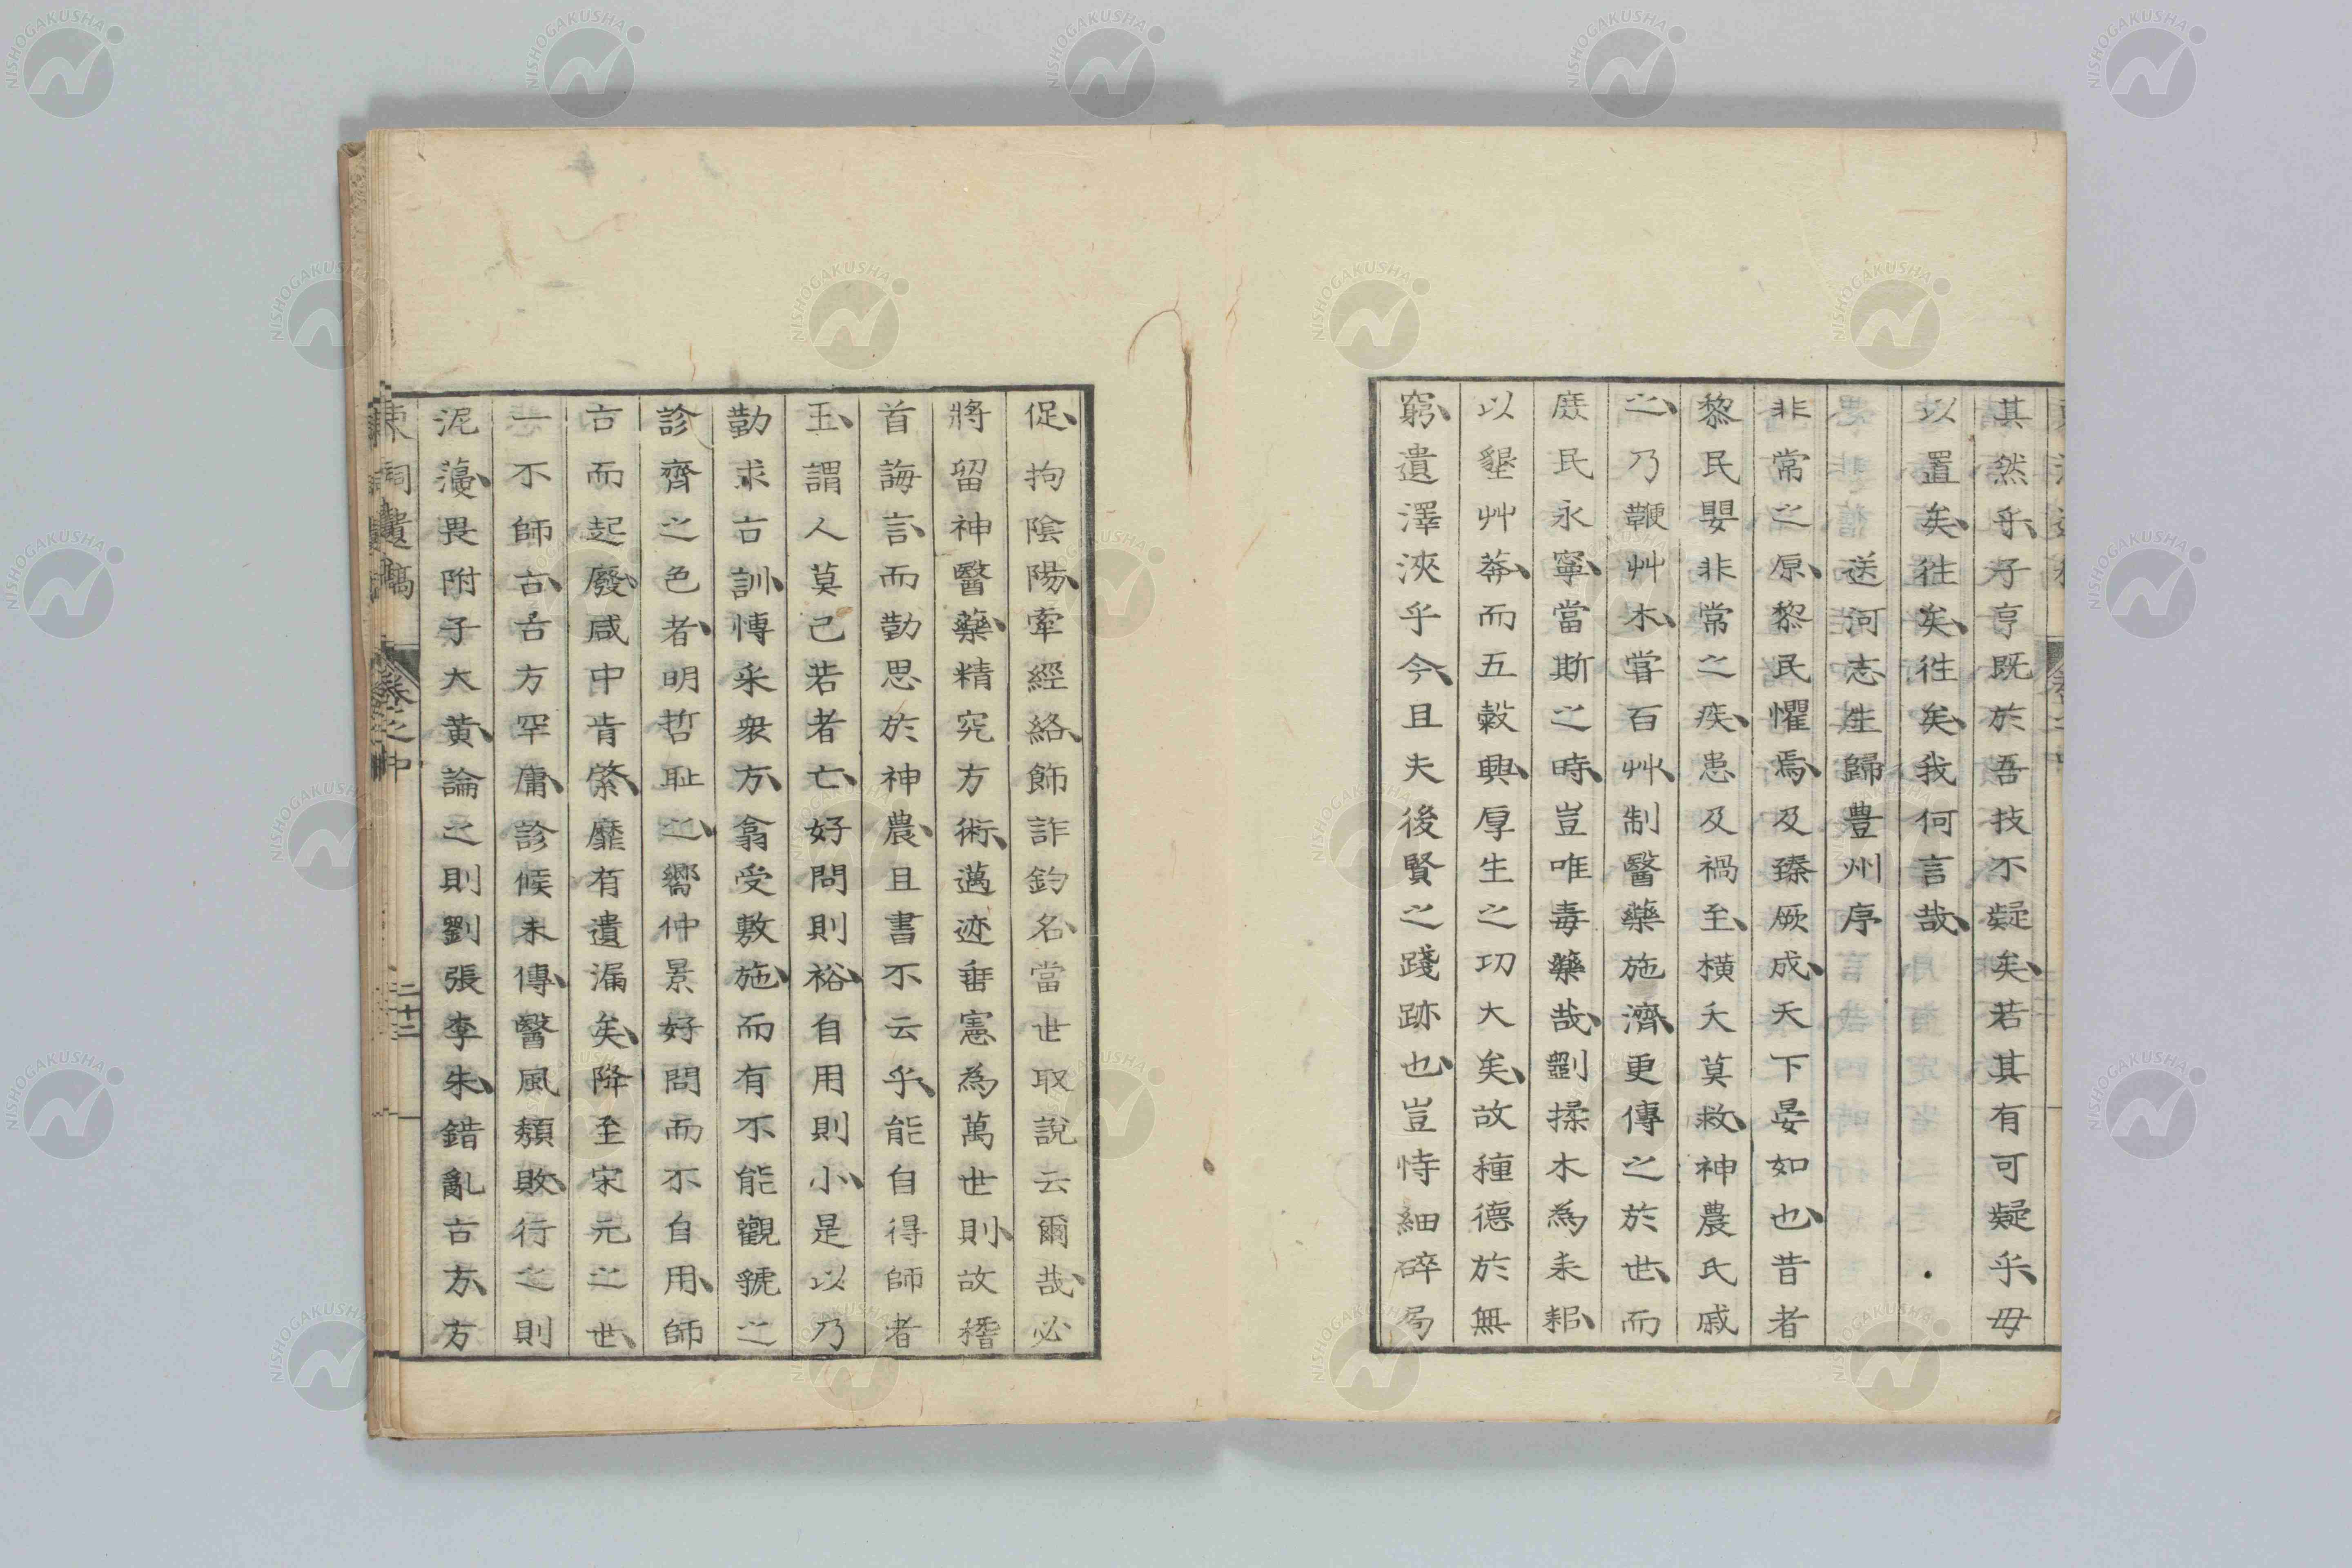 其然乎、子亨既於吾技不疑矣、若其有可疑乎、毋
以置矣、往矣、往矣、我何言哉、
送河志生歸豊州序
非常之原、黎民懼焉、及臻厥成、天下晏如也、昔者
黎民嬰非常之疾、患及禍至、橫夭莫救、神農氏戚
之、乃鞭艸木、嘗百艸、制醫藥施濟、更傳之於世、而
庶民永寧、當斯之時、豈唯毒藥哉、劉揉木為耒耜、
以墾艸莽、而五穀興、厚生之功大矣、故種德於無
窮、遺澤浹乎今、且夫後賢之踐跡也、豈恃細碎局
促、拘陰陽、牽經絡、飾詐釣名、當世取說云爾哉、必
將留神醫藥、精究方術、邁迹垂憲為萬世則、故稽
首誨言、而勤思於神農、且書不云乎、能自得師者
王、謂人莫己若者亡、好問則裕、自用則小、是以乃
勤求古訓、博采衆方、翕受敷施、而有不能觀虢之
診齊之色者、明哲耻之、嚮仲景好問而不自用、師
古而起廢、咸中肯綮、靡有遺漏矣、降至宋元之世、
一不師古、古方罕庸、診候未傳、醫風頹敗、行之則
泥蕩、畏附子大黃、論之則劉張李朱、錯亂古方、方
東洞遺稿 卷之中 二十二
NISHOGAKUSHA